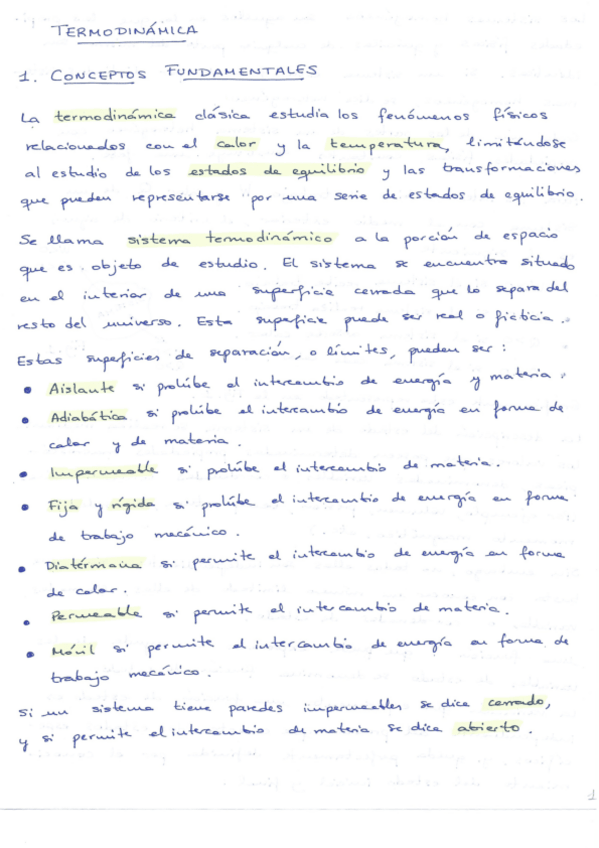 TERMODINÁMICA
1. CONCEPTOS FUNDAMENTALES
La termodinámica clásica estudia los fenómenos físicos
relacionados con el calor y la temperatura, limitándose
al estudio de los estados de equilibrio y las transformaciones
que pueden representarse por una serie de estados de equilibrio.
Se llama sistema termodinámico a la porción de espacio
que es objeto de estudio. El sistema se encuentra situado
en el interior de una superficie cerrada que lo separa del
resto del universo. Esta superficie puede ser real o ficticia.
Estas superficies de separación, o límites, pueden ser:
• Aislante si prohíbe el intercambio de energía y materia.
• Adiabática si prohíbe el intercambio de energía en forma de
calor y de materia.
• Impermeable si prohíbe el intercambio de materia.
• Fija y rígida si prohíbe el intercambio de energía en forma
de trabajo mecánico.
• Diatérmana si permite el intercambio de energía en forma
de calor.
• Permeable si permite el intercambio de materia.
• Móvil si permite el intercambio de energía en forma de
trabajo mecánico.
Si un sistema tiene paredes impermeables se dice cerrado,
y si permite el intercambio de materia se dice abierto.
1